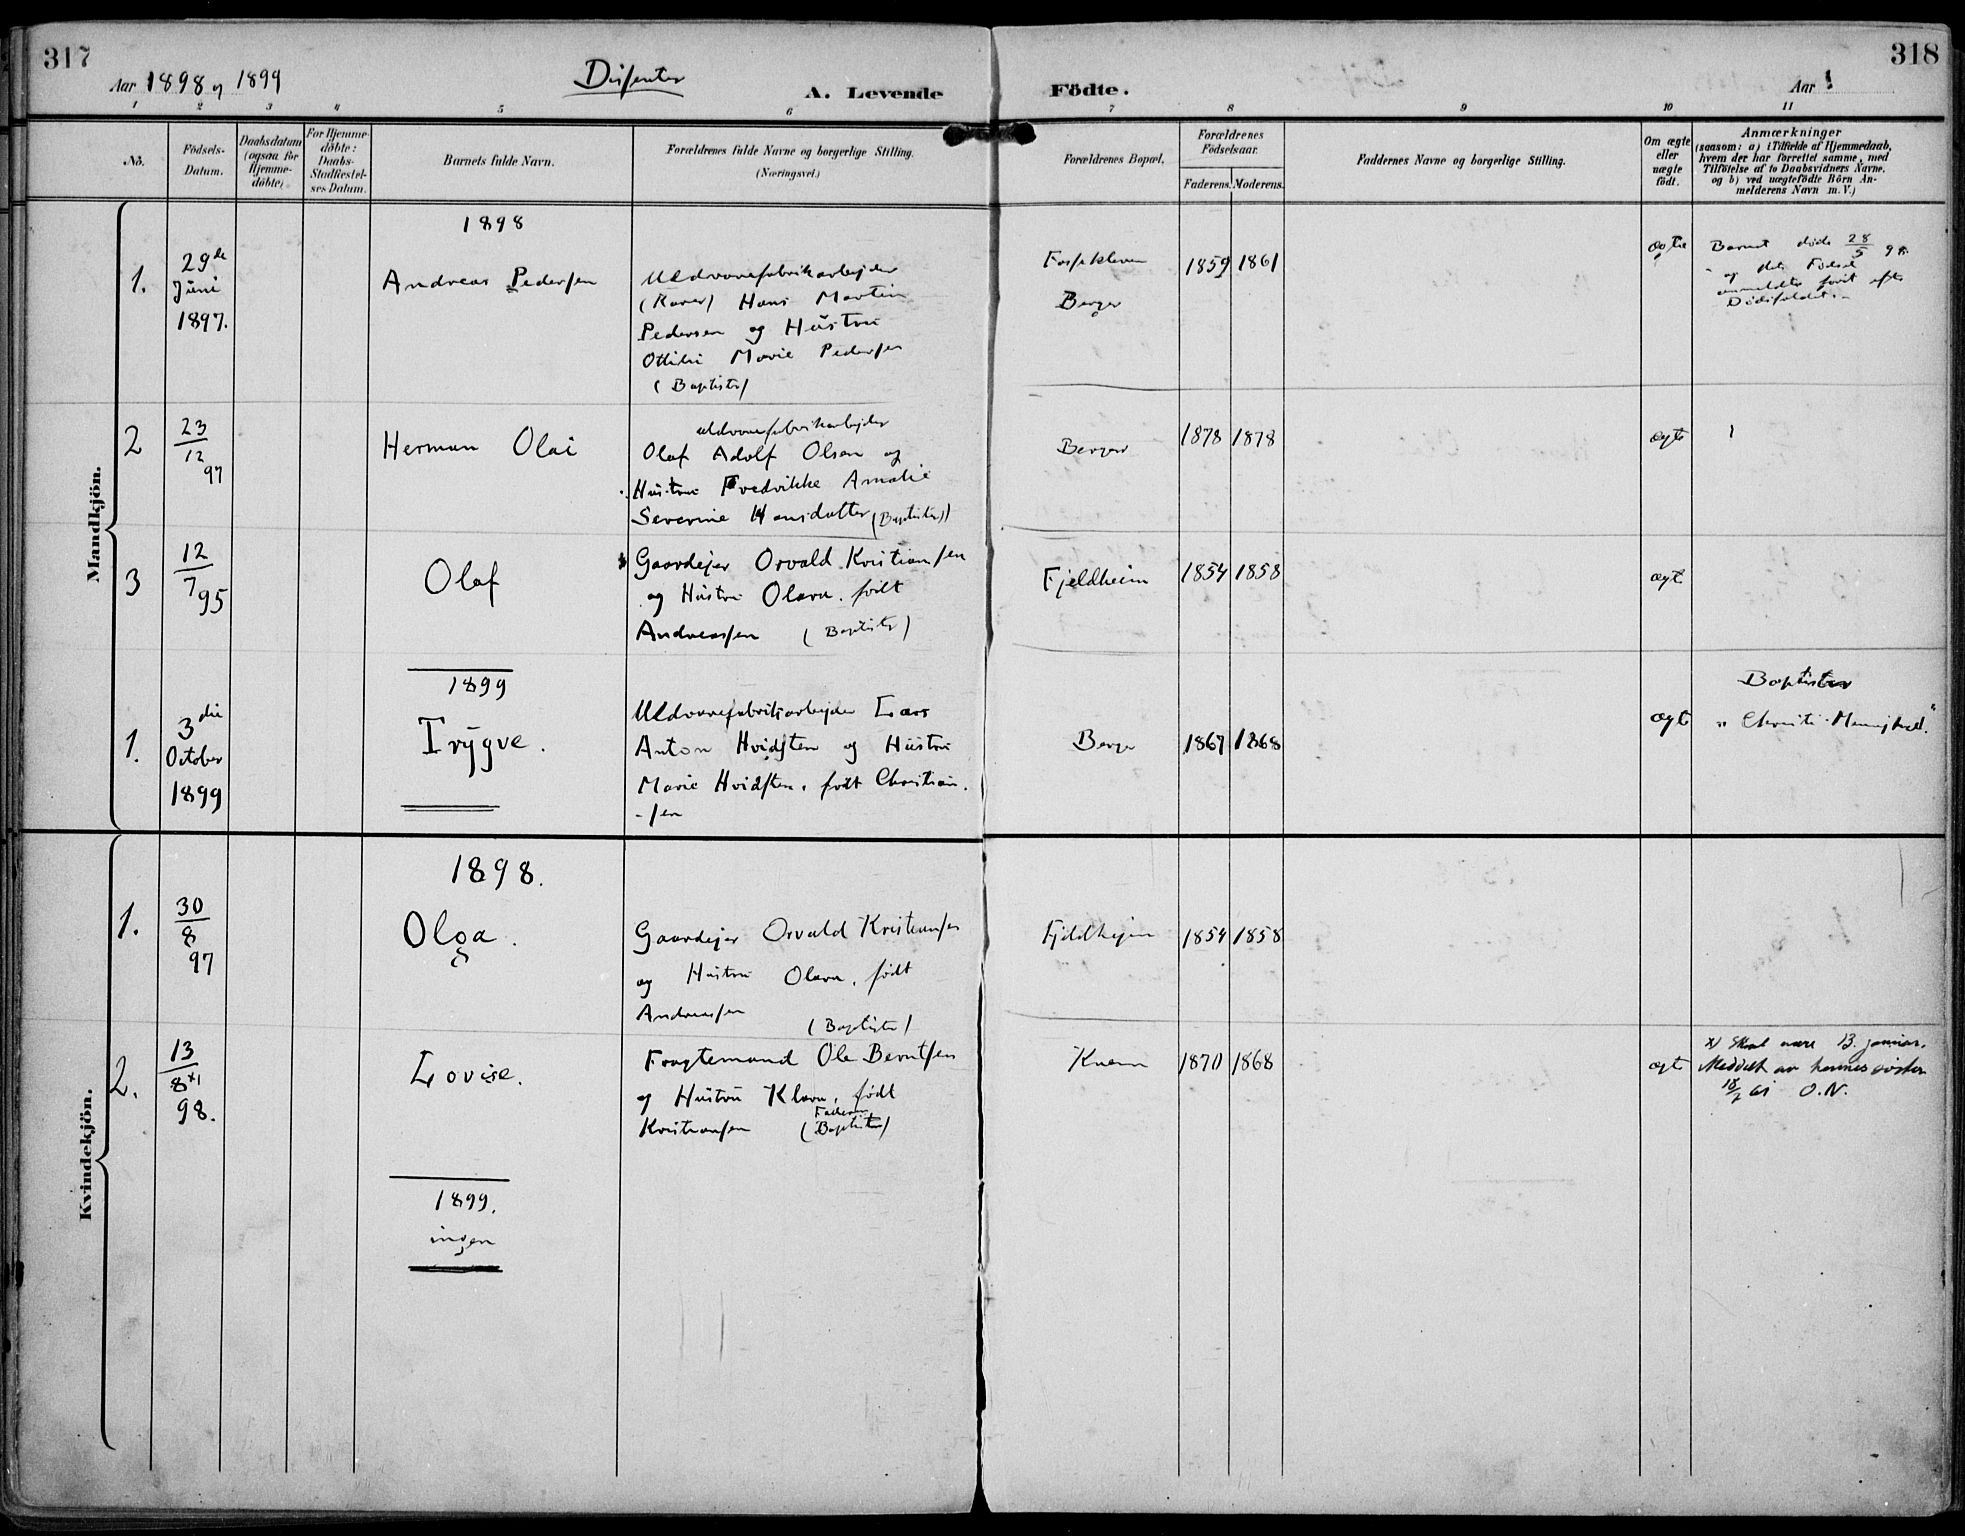 317
318
Aar 1898 og 1899
Disenter
A. Levende
Födte.
Aar
1 2 3 4 5 6 7 8 9 10 11
No.
Födsels-
Datum.
Daabsdatum
(ogsaa for
Hjemme-
döbte)
For Hjemme-
döbte:
Daabs-
Stadfæstel-
ses Datum.
Barnets fulde Navn.
Forældrenes fulde Navne og borgerlige Stilling.
(Næringsvei.)
Forældrenes Bopæl.
Forældrenes
Födselsaar.
Faderens. Moderens.
Faddernes Navne og borgerlige Stilling.
Om ægte
eller
uægte
födt.
Anmærkninger
(saasom: a) i Tilfælde af Hjemmedaab,
hvem der har forrettet samme, med
Tilföielse af to Daabsvidners Navne.
og b) ved uægtefödte Börn An-
melderens Navn m. V.)
Mandkjön.
1898
1.
29de
Juni
1897.
Andreas Pedersen
Uldvarefabrikarbejder
(Karer) Hans Martin
Pedersen og Hustru
Otilie Marie Pedersen
(Baptister)
Fossekleven
Berger
1859 1861
ægte
Barnet døde 28/5 98
og dets Fødsel
anmeldtes først efter
Dødsfaldet.
2
23/12
97
Herman Olai
uldvarefabrikarbejder
Olaf Adolf Olsen og
Hustru Fredrikke Amalie
Severine Hansdatter (Baptister)
Berger
1878 1878
ægte
3
12/7 95
Olaf
Gaardejer Orvald Kristiansen
og Hustru Olava. født
Andreassen (Baptister)
Fjeldheim
1854 1858
ægt
1899
1.
3die
October
1899
Trygve.
Uldvarefabrikarbejder Lars
Anton Hvidsten og Hustru
Marie Hvidsten. født Christian.
-sen
Berger
1867 1868
ægt
Baptister
"Christi Menighed."
Kvindekjön.
1898.
1.
30/8
97
Olga.
Gaardejer Orvald Kristiansen
og Hustru Olava. født
Andreassen
(Baptister)
Fjeldhejm
1854 1858
2.
13/8 x)
98.
Lovise.
Fragtemand Ole Berntsen
og Hustru Klara. født
Faderen
Kristiansen (Baptister)
Knem
1870 1868
ægt
x) Skal være 13. januar.
Meddelt av hennes søster
18/7 61 O.N.
1899.
ingen